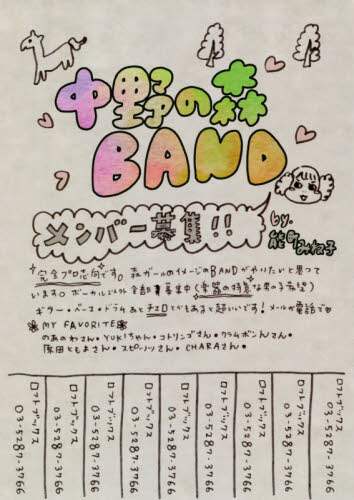 中野の森
BAND
メンバー募集!!
by.
能町みね子
完全プロ志向です。森ガールのイメージのBANDがやりたいと思って
います。ボーカル以外全部募集中(楽器の得意な男の子希望)
ギター・ベース・ドラムあとチェロとかもあると超いいです!メールか電話で
MY FAVORITE
のあのわさん・YUKIちゃん・コトリンゴさん・クラムボンさん・
原田ともよさん・スピッツさん・CHARAさん・
ロフトブックス
03-5287-3766
ロフトブックス
03-5287-3766
ロフトブックス
03-5287-3766
ロフトブックス
03-5287-3766
ロフトブックス
03-5287-3766
ロフトブックス
03-5287-3766
ロフトブックス
03-5287-3766
ロフトブックス
03-5287-3766